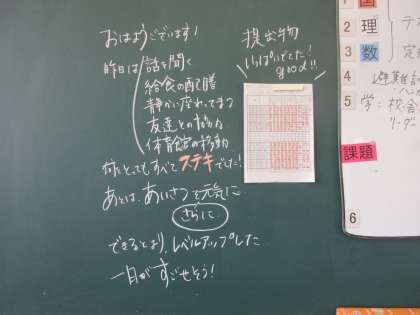 おはようございます!
昨日は
話を聞く
給食の配膳
静かに座ってまつ
友達との協力
体育館の移動
何をとってもすべてステキでした!
あとは、あいさつを元気に
さらに
できるとより、レベルアップした
一日がすごせそう!
提出物
いっぱいでてた!
good!!
国
理
数
4
5
学:校舎
リーダー
課題
6